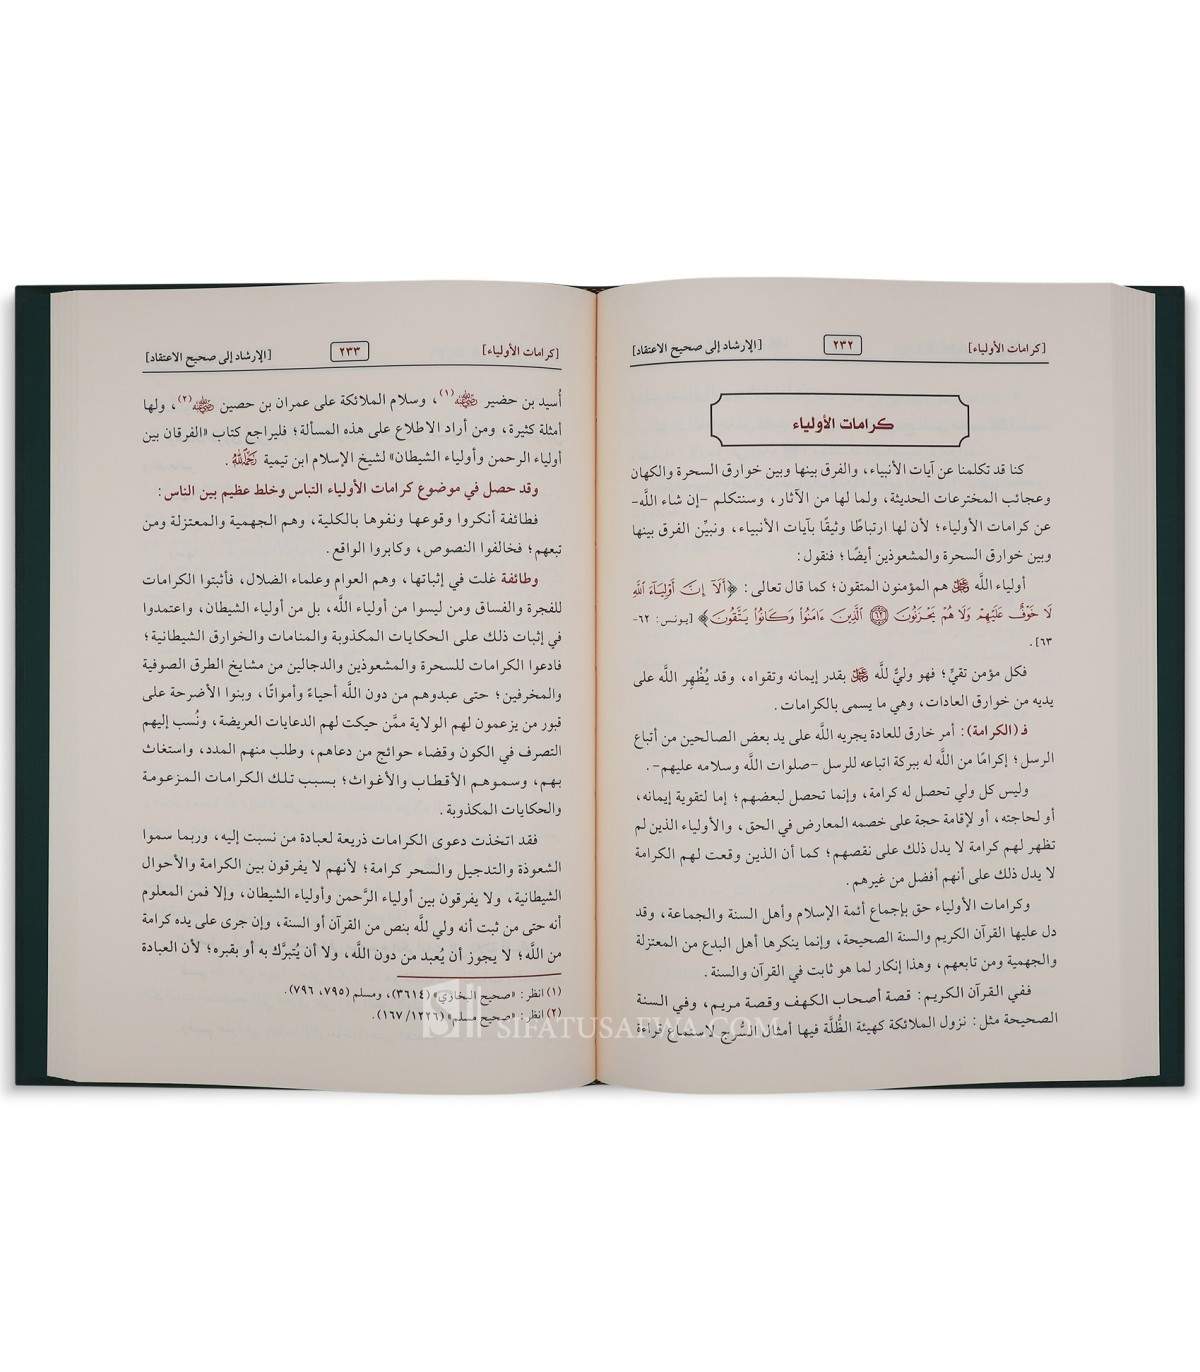 [كرامات الأولياء] ٢٣٢ [الإرشاد إلى صحيح الاعتقاد]
كرامات الأولياء
كنا قد تكلمنا عن آيات الأنبياء، والفرق بينها وبين خوارق السحرة والكهان
وعجائب المخترعات الحديثة، ولما لها من الآثار، وسنتكلم -إن شاء اللَّه-
عن كرامات الأولياء؛ لأن لها ارتباطًا وثيقًا بآيات الأنبياء، ونبيِّن الفرق بينها
وبين خوارق السحرة والمشعوذين أيضًا؛ فنقول:
أولياء اللَّه ﷿ هم المؤمنون المتقون؛ كما قال تعالى: ﴿أَلَآ إِنَّ أَوْلِيَآءَ ٱللَّهِ
لَا خَوْفٌ عَلَيْهِمْ وَلَا هُمْ يَحْزَنُونَ ٦٢ ٱلَّذِينَ ءَامَنُوا۟ وَكَانُوا۟ يَتَّقُونَ﴾ [يونس: ٦٢-
٦٣].
فكل مؤمن تقيٍّ؛ فهو وليٌّ للَّه ﷿ بقدر إيمانه وتقواه، وقد يُظْهِر اللَّه على
يديه من خوارق العادات، وهي ما يسمى بالكرامات.
فـ (الكرامة): أمر خارق للعادة يجريه اللَّه على يد بعض الصالحين من أتباع
الرسل؛ إكرامًا من اللَّه له ببركة اتباعه للرسل -صلوات اللَّه وسلامه عليهم-.
وليس كل ولي تحصل له كرامة، وإنما تحصل لبعضهم؛ إما لتقوية إيمانه،
أو لحاجته، أو لإقامة حجة على خصمه المعارض في الحق، والأولياء الذين لم
تظهر لهم كرامة لا يدل ذلك على نقصهم؛ كما أن الذين وقعت لهم الكرامة
لا يدل ذلك على أنهم أفضل من غيرهم.
وكرامات الأولياء حق بإجماع أئمة الإسلام وأهل السنة والجماعة، وقد
دل عليها القرآن الكريم والسنة الصحيحة، وإنما ينكرها أهل البدع من المعتزلة
والجهمية ومن تابعهم، وهذا إنكار لما هو ثابت في القرآن والسنة.
ففي القرآن الكريم: قصة أصحاب الكهف وقصة مريم، وفي السنة
الصحيحة مثل: نزول الملائكة كهيئة الظُّلَّة فيها أمثال السُّرج لاستماع قراءة
[كرامات الأولياء] ٢٣٣ [الإرشاد إلى صحيح الاعتقاد]
أُسيد بن حضير رضي الله عنه (١)، وسلام الملائكة على عمران بن حصين رضي الله عنه (٢)، ولها
أمثلة كثيرة، ومن أراد الاطلاع على هذه المسألة؛ فليراجع كتاب «الفرقان بين
أولياء الرحمن وأولياء الشيطان» لشيخ الإسلام ابن تيمية رحمه الله.
وقد حصل في موضوع كرامات الأولياء التباس وخلط عظيم بين الناس:
فطائفة أنكروا وقوعها ونفوها بالكلية، وهم الجهمية والمعتزلة ومن
تبعهم؛ فخالفوا النصوص، وكابروا الواقع.
وطائفة غلت في إثباتها، وهم العوام وعلماء الضلال، فأثبتوا الكرامات
للفجرة والفساق ومن ليسوا من أولياء اللَّه، بل من أولياء الشيطان، واعتمدوا
في إثبات ذلك على الحكايات المكذوبة والمنامات والخوارق الشيطانية؛
فادعوا الكرامات للسحرة والمشعوذين والدجالين من مشايخ الطرق الصوفية
والمخرفين؛ حتى عبدوهم من دون اللَّه أحياءً وأمواتًا، وبنوا الأضرحة على
قبور من يزعمون لهم الولاية ممَّن حيكت لهم الدعايات العريضة، ونُسب إليهم
التصرف في الكون وقضاء حوائج من دعاهم، وطلب منهم المدد، واستغاث
بهم، وسموهم الأقطاب والأغواث؛ بسبب تلك الكرامات المزعومة
والحكايات المكذوبة.
فقد اتخذت دعوى الكرامات ذريعة لعبادة من نسبت إليه، وربما سموا
الشعوذة والتدجيل والسحر كرامة؛ لأنهم لا يفرقون بين الكرامة والأحوال
الشيطانية، ولا يفرقون بين أولياء الرَّحمن وأولياء الشيطان، وإلا فمن المعلوم
أنه حتى من ثبت أنه ولي للَّه بنص من القرآن أو السنة، وإن جرى على يده كرامة
من اللَّه؛ لا يجوز أن يُعبد من دون اللَّه، ولا أن يُتبرَّك به أو بقبره؛ لأن العبادة
(١) انظر: «صحيح البخاري» (٣٦١٤)، ومسلم (٧٩٥، ٧٩٦).
(٢) انظر: «صحيح مسلم» (١٦٧/١٢٢٦).
SIFATUSAFWA.COM